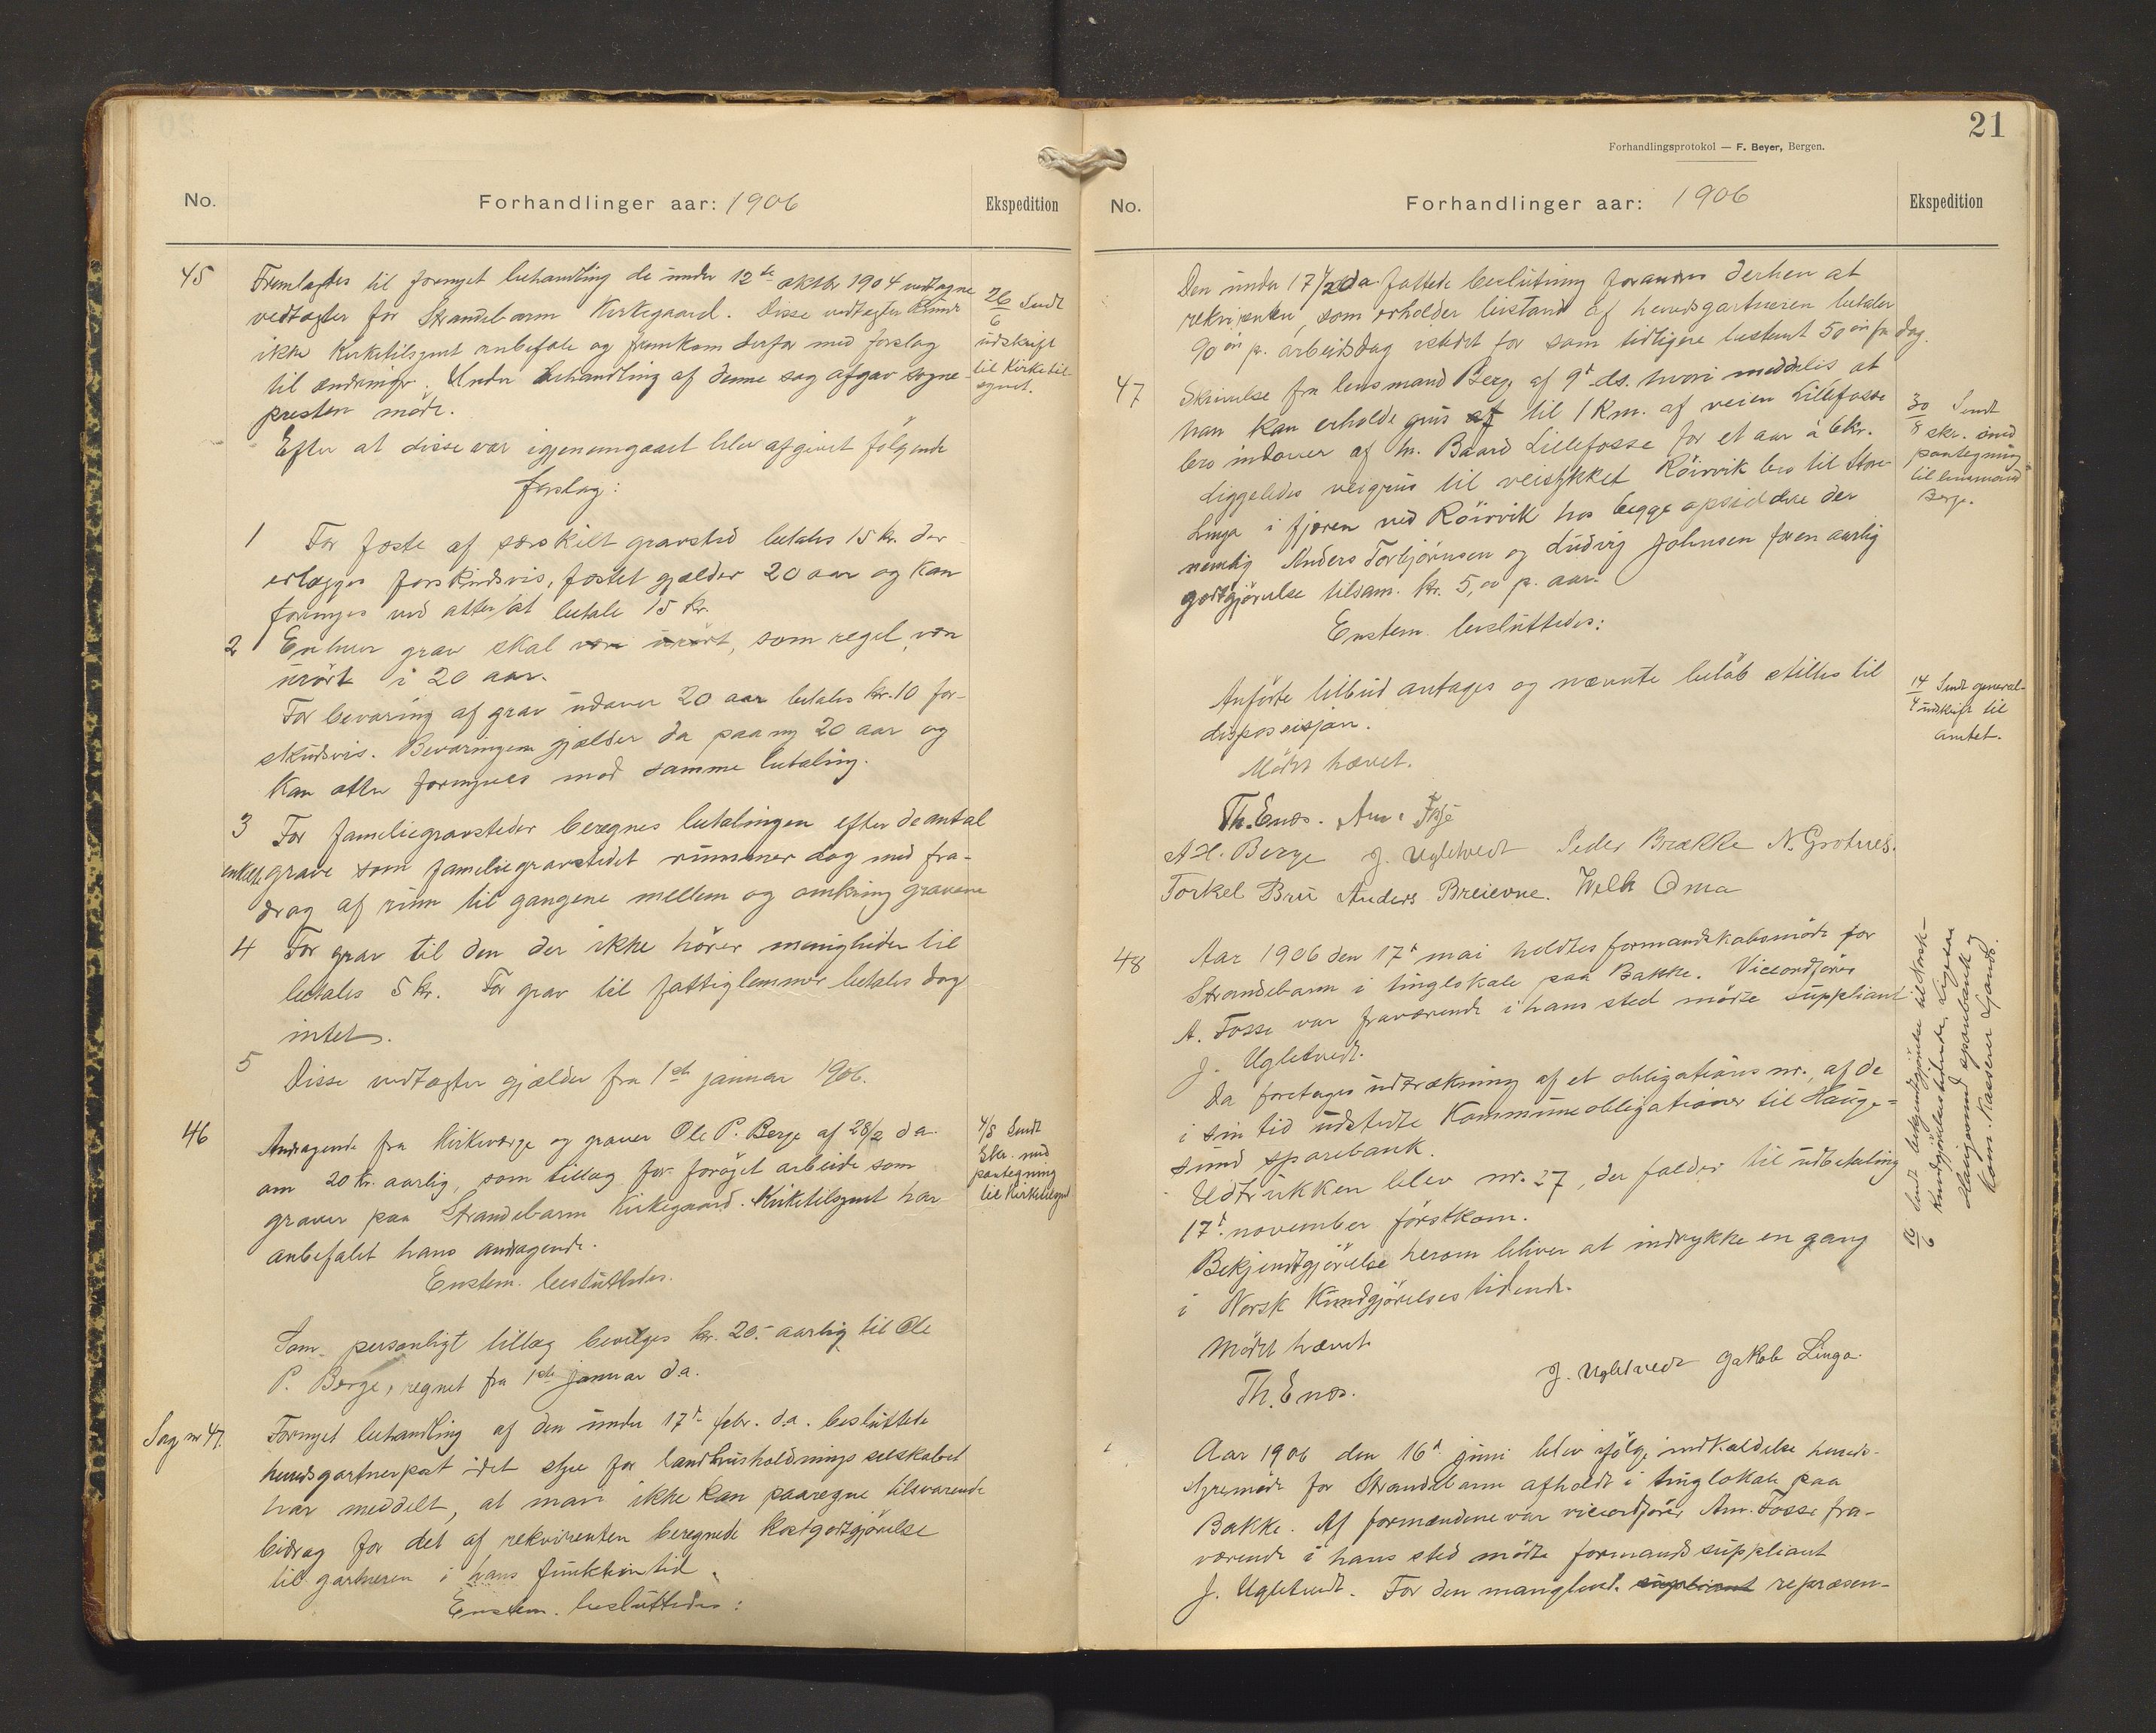 No.
Forhandlinger aar: 1906
Ekspedition
45
Fremlagdes til fornyet behandling de under 12te oktbr 1904 vedtagne
vedtægter for Strandebarm Kirkegaard. Disse vedtægter kunde
ikke Kirketilsynet anbefale og fremkom derfor med forslag
til ændringer. Under behandling af denne sag afgav sogne-
presten møde.
26/6 Sendt
udskrift
til Kirketil-
synet.
Efter at disse var igjennemgaaet blev afgivet følgende
forslag:
1 For fæste af særskilt gravsted betales 15 kr. der
erlægges forskudsvis, fæstet gjælder 20 aar og kan
fornyes ved atter at betale 15 kr.
2 Enhver grav skal være urørt, som regel, være
urørt i 20 aar.
For bevaring af grav udover 20 aar betales kr. 10 for-
skudsvis. Bevaringen gjælder da paa ny 20 aar og
kan atter fornyes mod samme betaling.
3 For familiegravsteder beregnes betalingen efter de antal
enkelte grave som familiegravstedet rummer dog med fra-
drag af rum til gangene mellem og omkring gravene
4 For grav til den der ikke hører menigheden til
betales 5 kr. For grav til fattiglemmer betales dog
intet.
5 Disse vedtægter gjælder fra 1ste januar 1906.
46
Andragende fra Kirkeværge og graver Ole P. Berge af 28/2 d.a.
om 20 kr. aarlig, som tillæg for forøget arbeide som
graver paa Strandebarm Kirkegaard. Kirketilsynet har
anbefalet hans andragende.
4/5 Sendt
Skr. med
paategning
til Kirketilsynet
Enstem. besluttedes.
Som personligt tillæg bevilges kr. 20.- aarlig til Ole
P. Berge, regnet fra 1ste januar d.a.
Sag nr 47.
Fornyet behandling af den under 17de febr. d.a. besluttede
herredsgartnerpost idet styre for landhusholdningsselskabet
har meddelt, at man ikke kan paaregne tilsvarende
bidrag for det af rekvirenten beregnede kostgodtgjørelse
til gartneren i hans funktiontid.
Enstem. besluttedes:
21
Forhandlingsprotokol — F. Beyer, Bergen.
No.
Forhandlinger aar: 1906
Ekspedition
Den under 17/2 d.a. fattede beslutning forandres derhen at
rekvirenten, som erholder bistand af herredsgartneren betaler
90 øre p. arbeidsdag istedet for som tidligere bestemt 50 øre pr dag.
47
Skrivelse fra lensmand Berge af 9de ds. hvori meddeles at
han kan erholde grus af til 1 Km. af veien Lillefosse
bro indover af hr. Baard Lillefosse for et aar á 6 kr.
Liggeledes veigrus til veistykket Røirvik bro til Store
Linga i fjæren ved Røirvik hos begge opsiddere der
nemlig Anders Torbjørnsen og Ludvig Johnsen for en aarlig
godtgjørelse tilsam. kr. 5,00 p. aar.
30/8 Sendt
skr. med
paategning
til lensmand
Berge.
Enstem. besluttedes:
Anførte tilbud antages og nævnte beløb stilles til
disposisjon.
14/4 Sendt general-
udskrift til
amtet.
Mødet hævet.
Th. Enæs. Am. Fosse
A H. Berge J. Ugletvedt Peder Brække N. Grotnes.
Torkel Bru Anders Breievne. Welh Oma
48
Aar 1906 den 17de mai holdtes formandskabsmøde for
Strandebarm i tinglokale paa Bakke. Viceordfører
A. Fosse var fraværende i hans sted mødte suppliant
J. Ugletvedt.
Da foretages udtrækning af et obligations nr., af de
i sin tid udstedte Kommuneobligationer til Hauge-
sund sparebank.
Udtrukken blev nr. 27, der falder til udbetaling
17de november førstkom.
Bekjendtgjørelse herom bliver at indrykke en gang
i Norsk Kundgjørelsestidende.
16/6 Sendt bekjendtgjørelse til Norsk-
Kundgjørelsestidende. Ligesaa
Haugesund sparebank og
Kom. Kasserer
Mødet hævet
Th. Enæs.
J. Ugletvedt Jakob Linga.
Aar 1906 den 16de juni blev ifølge indkaldelse herreds-
styremøde for Strandebarm afholdt i tinglokale paa
Bakke. Af formændene var viceordfører Am. Fosse fra-
værende i hans sted mødte formandssuppliant
J. Ugletvedt. For den manglende suppliant repræsen-